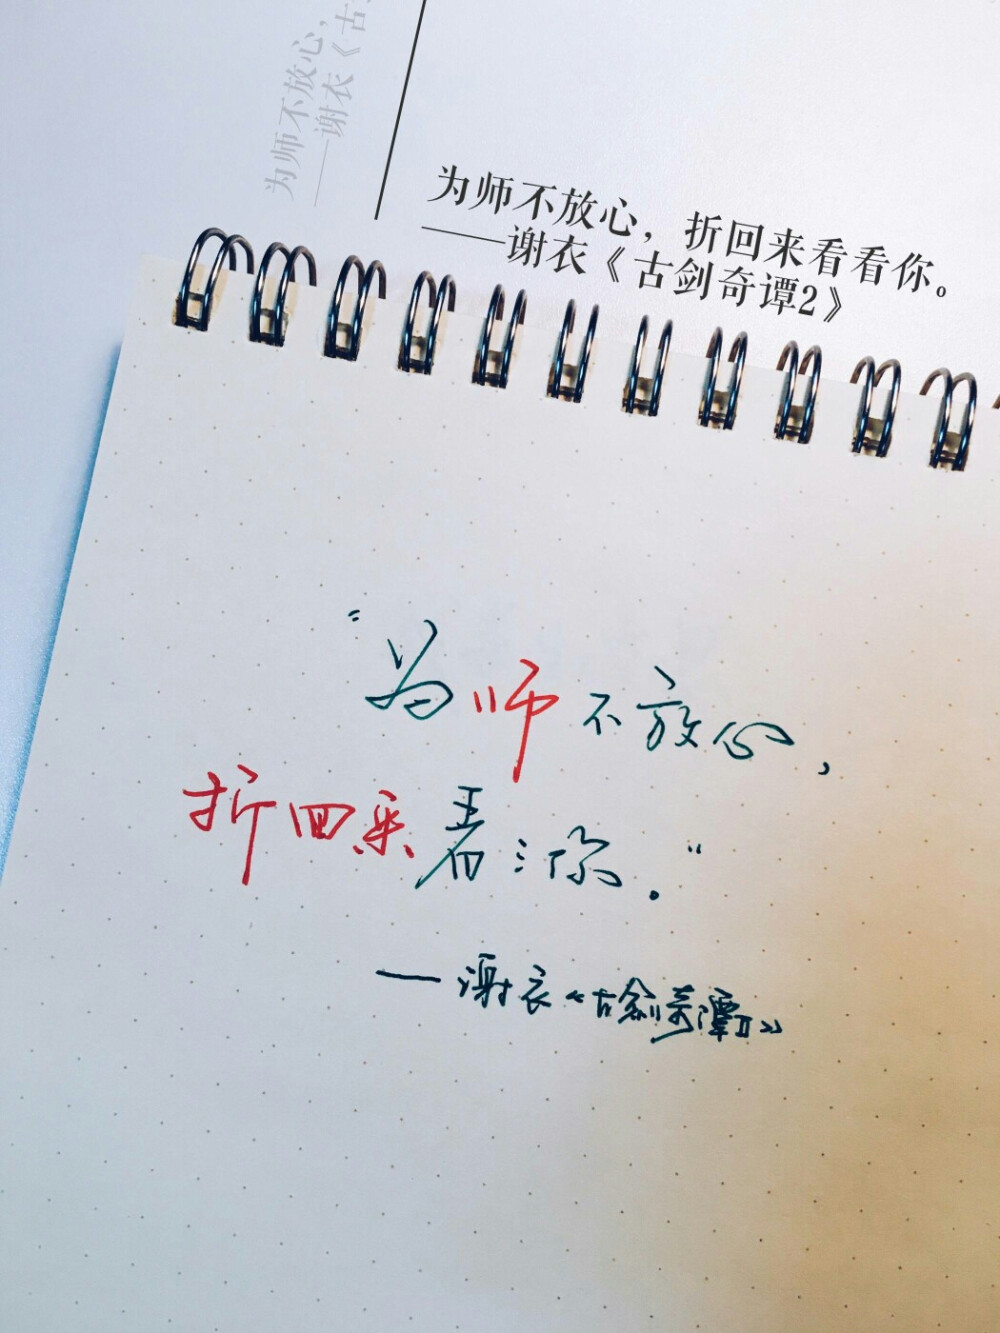 为师不放心，
——谢衣《古
为师不放心，折回来看看你。
——谢衣《古剑奇谭2》
“为师不放心，
折回来看:你。”
——谢衣《古剑奇谭Ⅱ》